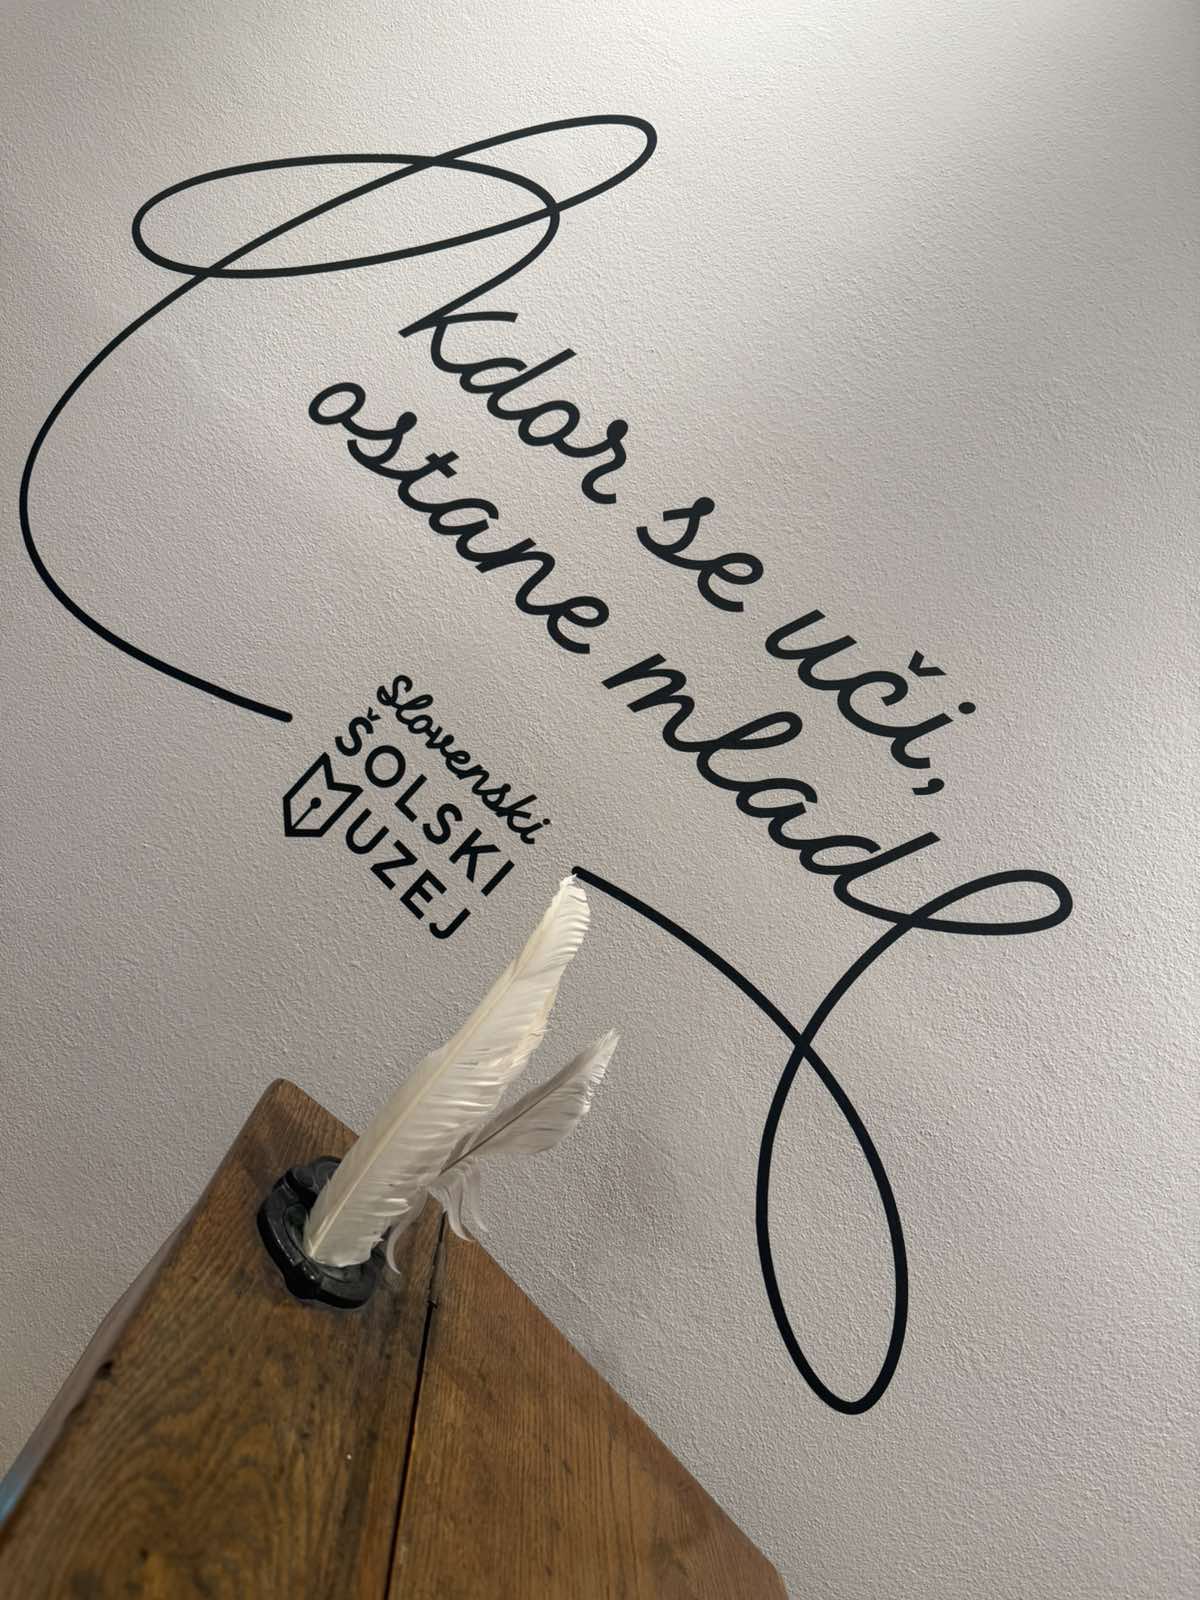 kdor se uči,
ostane mlad
Slovenski
ŠOLSKI
MUZEJ